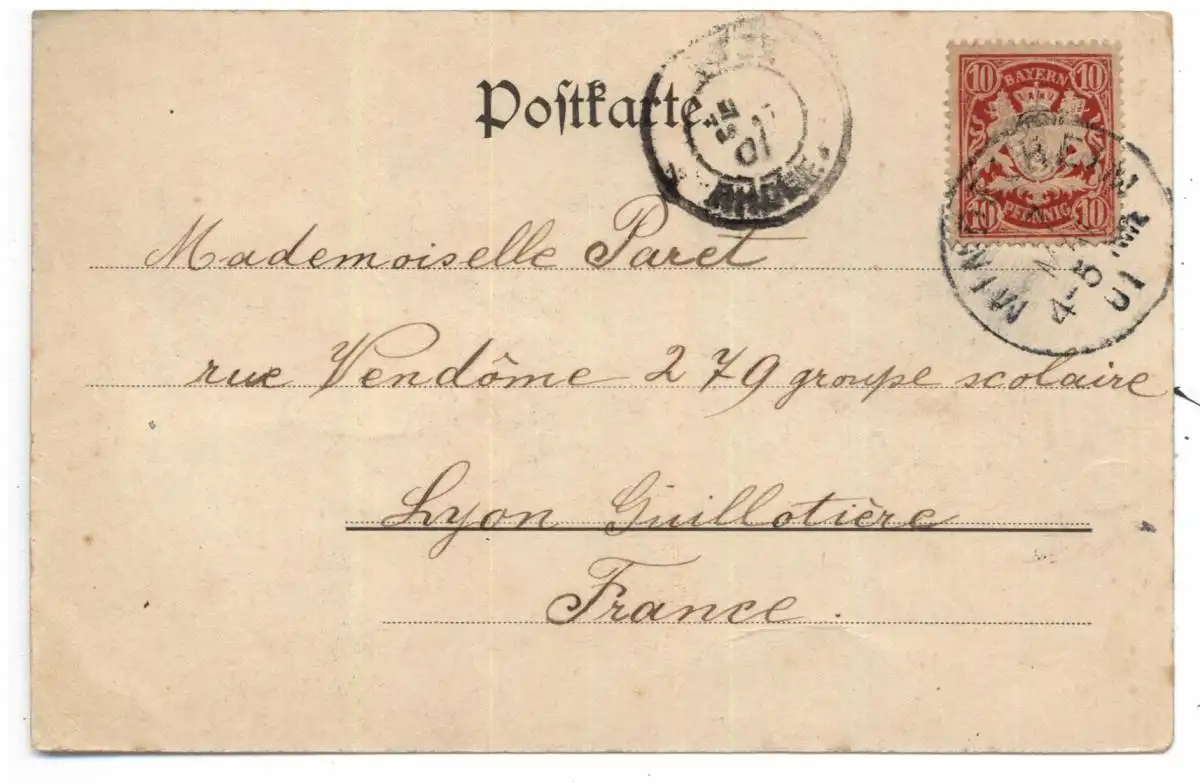 Postkarte.
RHONE
01
10 BAYERN 10
10 PFENNIG 10
MÜNCHEN
4-5 NM
01
Mademoiselle Paret
rue Vendôme 279 groupe scolaire
Lyon Guillotière
France.